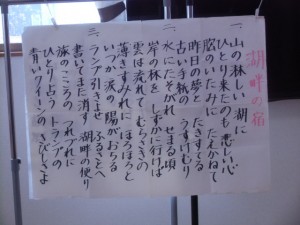 湖畔の宿
一、
山の淋しい湖に
ひとり来たのも悲しい心
胸のいたみに たえかねて
昨日の夢と たきすてる
古い手紙の うすけむり
二、
水にたそがれ せまる頃
岸の林を しずかに行けば
雲は流れて むらさきの
薄きすみれに ほろほろと
いつか涙の 陽がおちる
三、
ランプ引きよせ ふるさとへ
書いてまた消す 湖畔の便り
旅のこころの つれづれに
ひとり占う トランプの
青いクイーンの さびしさよ